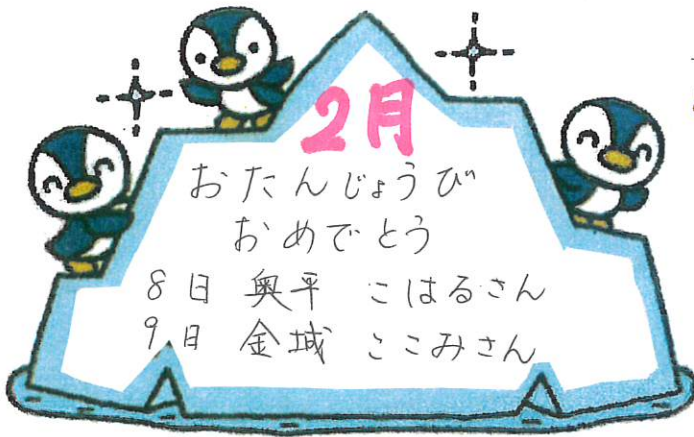 2月
おたんじょうび
おめでとう
8日 奥平 こはるさん
9日 金城 ここみさん